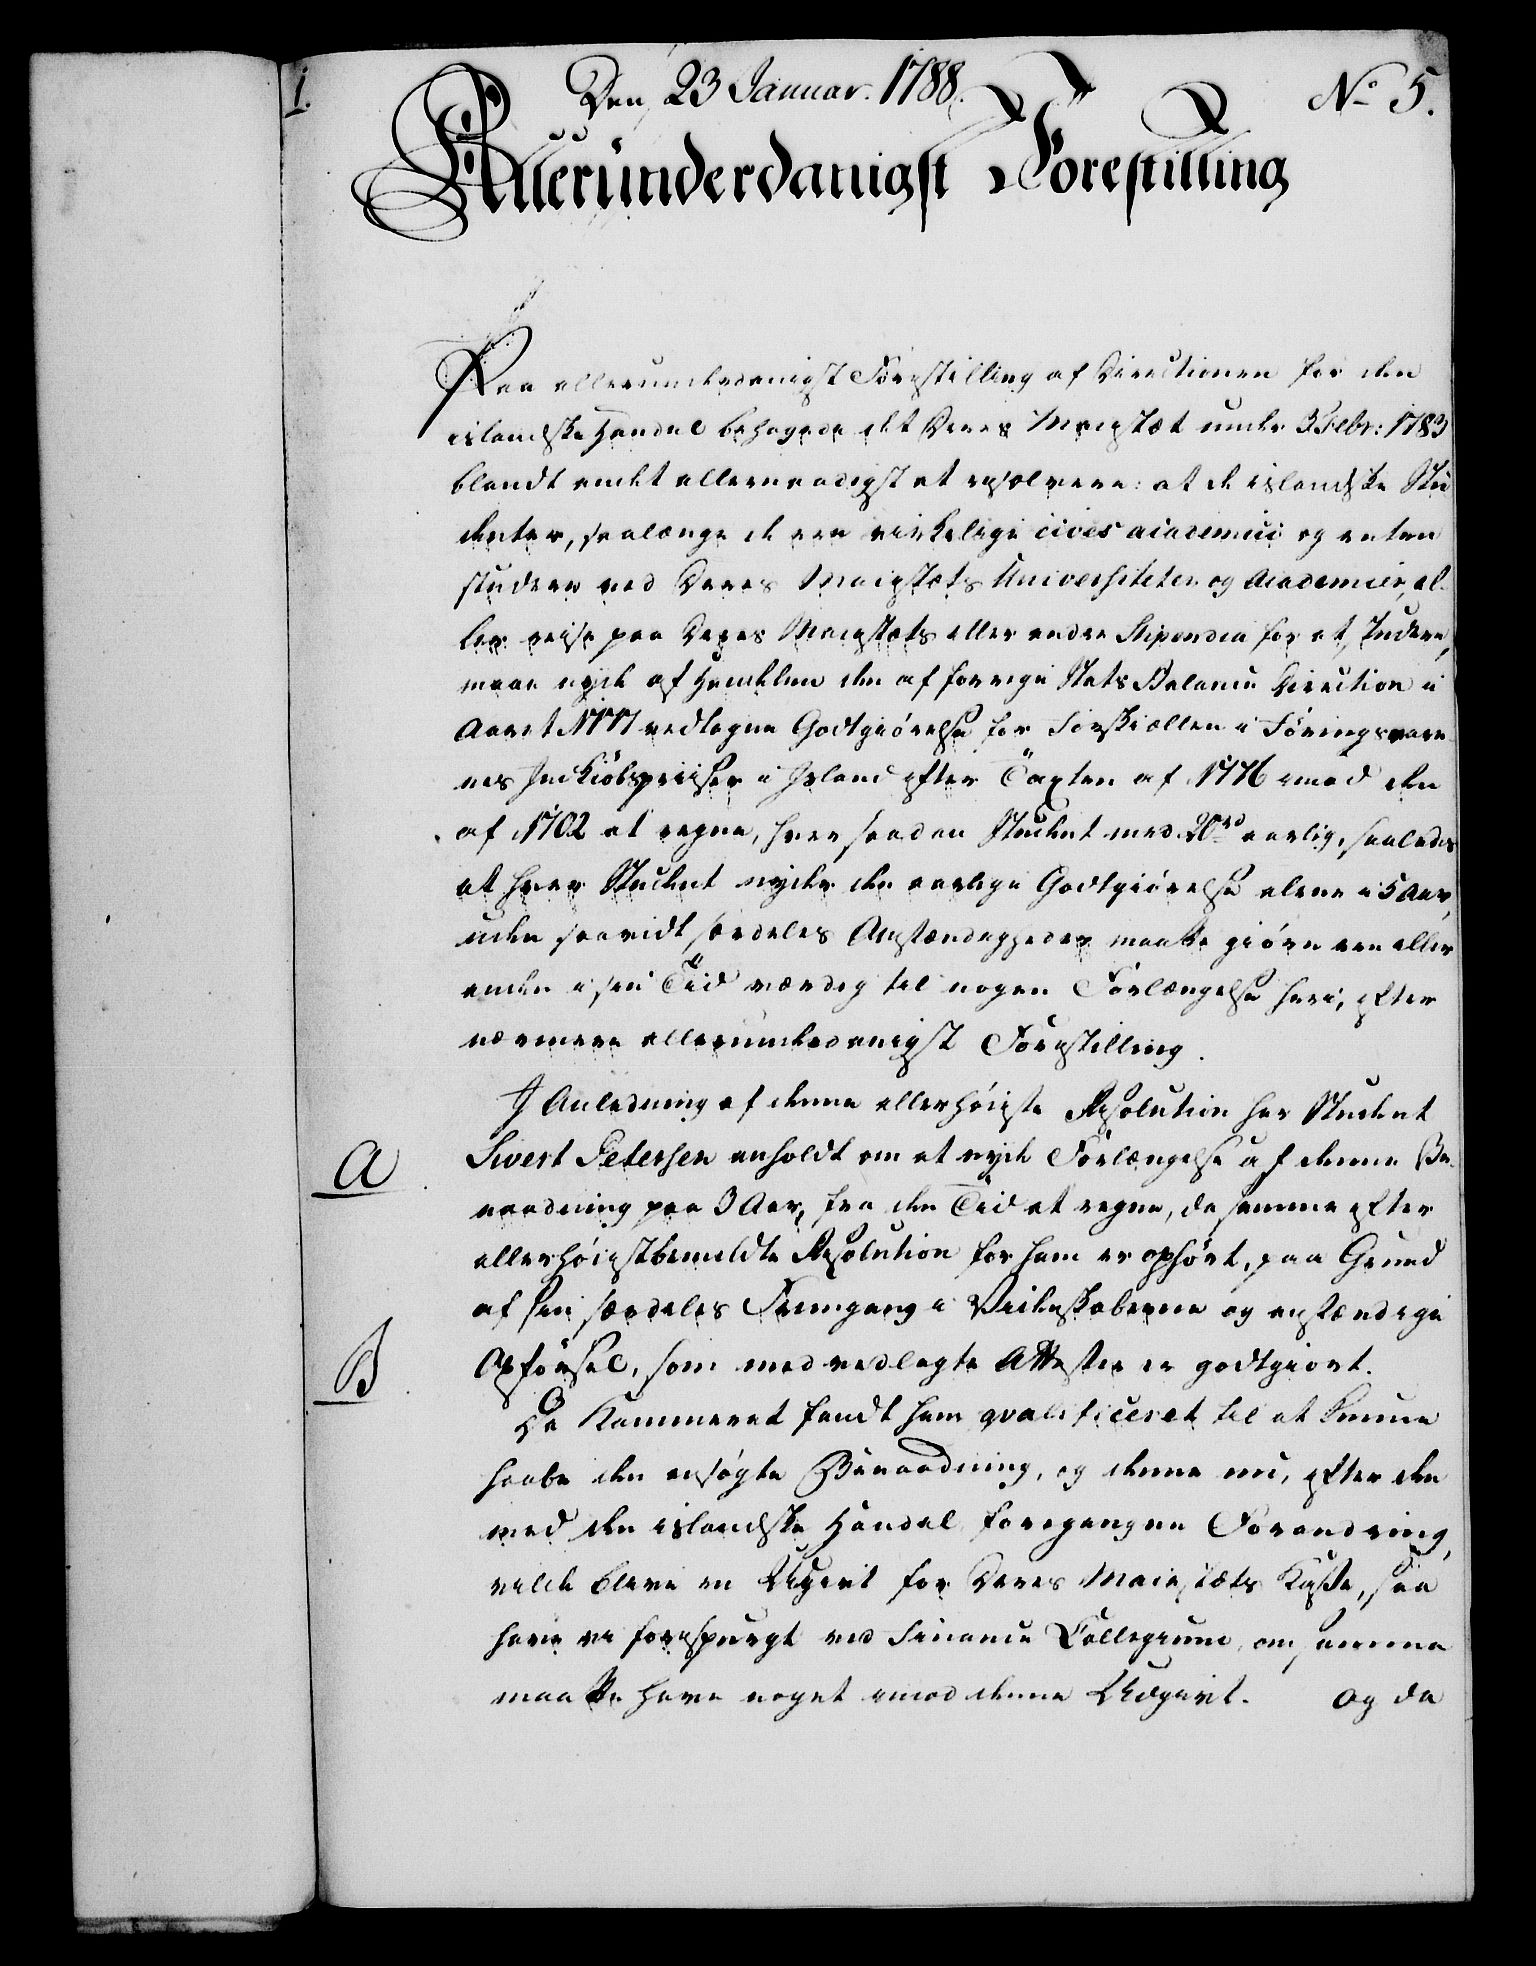 1.
Den 23 Januar. 1788.
No 5.
Alleründerdanigst Forestilling
Paa allerunderdanigst Forestilling af Directionen for den
islandske Handel behagede det Deres Majestæt under 3 Febr: 1783
blandt andet allernaadigst at resolvere: at de islandske Stu
denter, saalænge de ere virkelige cives academici og enten
studere ved Deres Majestæts Universiteter og Academier, el-
ler reise paa Deres Majestæts eller andre Stipendia for at studere,
maae nyde af Handelen den af forrige Stats Balance Direction i
Aaret 1777 vedtagne Godtgiørelse for Forskiællen i Føringsvare
nes Indkiöbspriser i Island efter Taxten af 1776 imod den
af 1702 at regne, hver saadan Student med 20 rd aarlig, saaledes
at hver Student nyder den aarlige Godtgiörelse alene i 5 Aar,
uden saavidt særdeles Omstændigheder maatte giöre een eller
anden i sin Tid værdig til nogen Forlængelse heri, efter
nærmere allerunderdanigst Forestilling.
I Anledning af denne allerhöieste Resolution har Student
A
Sivert Petersen anholdt om at nyde Forlængelse af denne Be-
naadning paa 3 Aar, fra den Tid at regne, da samme efter
allerhöiestbemeldte Resolution for ham er ophört, paa Grund
af sin særdeles Fremgang i Videnskaberne og anstændige
B
Opförsel, som med vedlagte Attester er godtgiort.
Da Kammeret fandt ham qvalificeret til at kunne
haabe den ansögte Benaadning, og denne nu, efter den
med den islandske Handel foregangne Forandring,
vilde blive en Udgivt for Deres Majestæts Kasse, saa
have vi forespurgt ved Finance Collegium, om samme
maatte have noget imod denne Udgivt. Og da